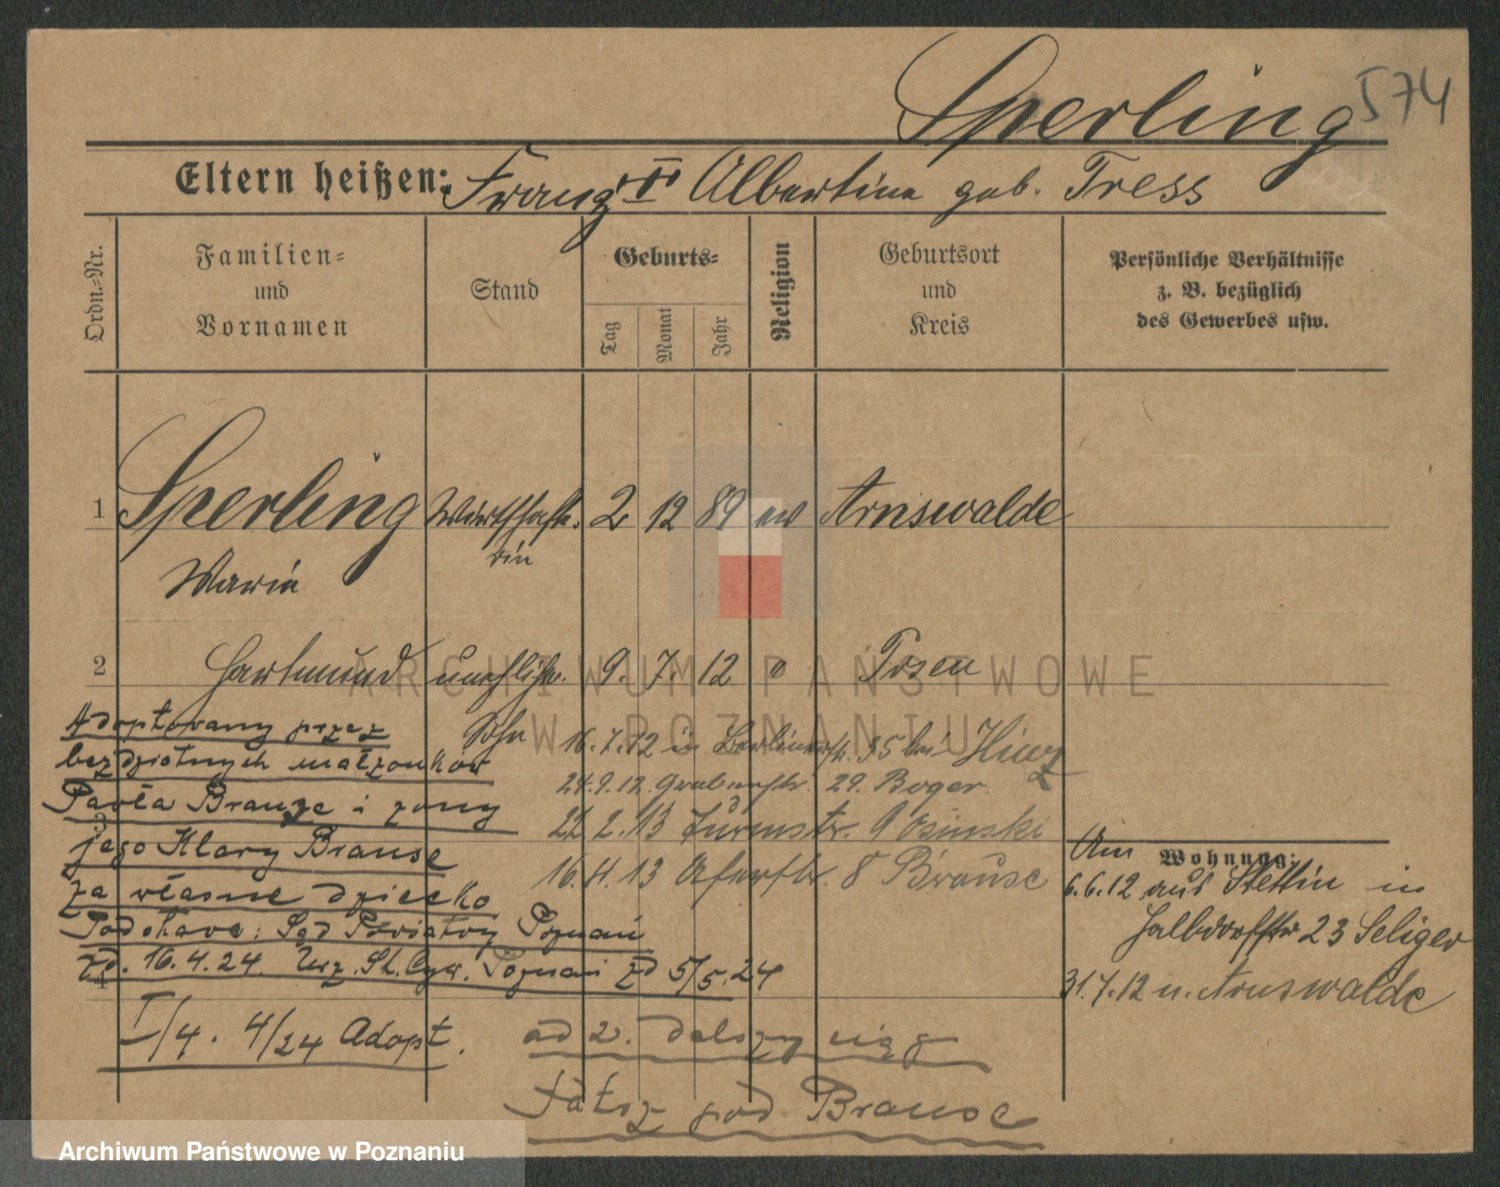 Sperling 574
Eltern heißen: Franz u Albertine geb. Tress
Ordn.-Nr.
Familien-
und
Vornamen
Stand
Geburts-
Tag
Monat
Jahr
Religion
Geburtsort
und
Kreis
Persönliche Verhältnisse
z. B. bezüglich
des Gewerbes usw.
1 Sperling Wirthschaft- 2 12 89 ev Arnswalde
rin
Maria
2 Hartmund unehlich. 9. 7. 12 " Posen
Sohn
16.7.12 in Berlinerstr. 35 bei Hinz
24.9.12. Grabenstr. 29. Boger
22.2.13 Turmstr. 9 Osinski
16.4.13 Uferstr. 8 Brause
Adoptowany przez
bezdzietnych małżonków
Pawła Brauze i żony
3
jego Klary Brause
za własne dziecko
Podstawa: Sąd Powiatowy Poznań
zd. 16.4.24. Urz. St. Cyw. Poznań zd 5/5.24
4
I/4. 4/24 Adopt.
Wohnung:
Am
6.6.12 aus Stettin in
Halbdorfstr 23 Seliger
31.7.12 n. Arnswalde
ad 2. dalszy ciąg
patrz pod Brause
ARCHIWUM PAŃSTWOWE
W POZNANIU
Archiwum Państwowe w Poznaniu